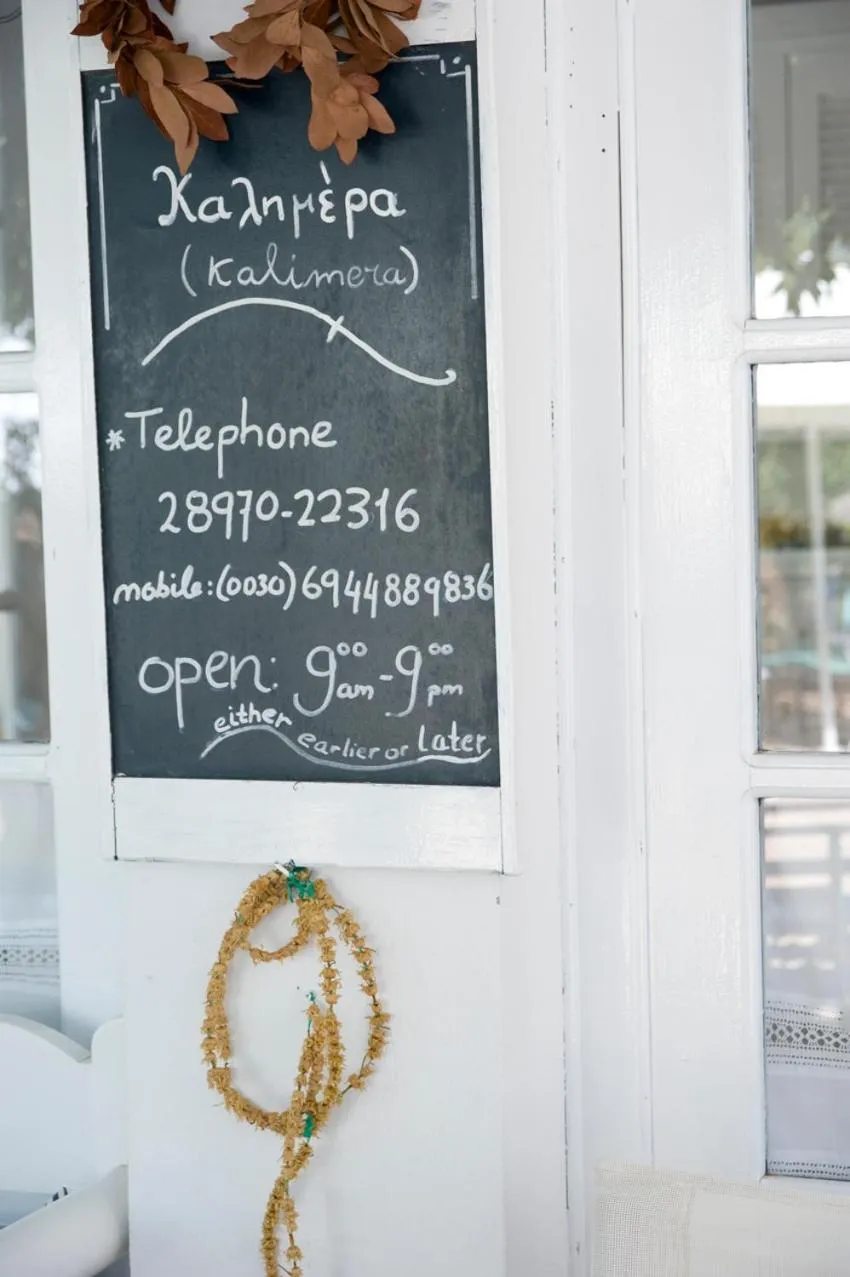 Καλημὲρα
(Kalimera)
*Telephone
28970-22316
mobile:(0030)6944889836
open: 9⁰⁰am-9⁰⁰pm
either earlier or Later